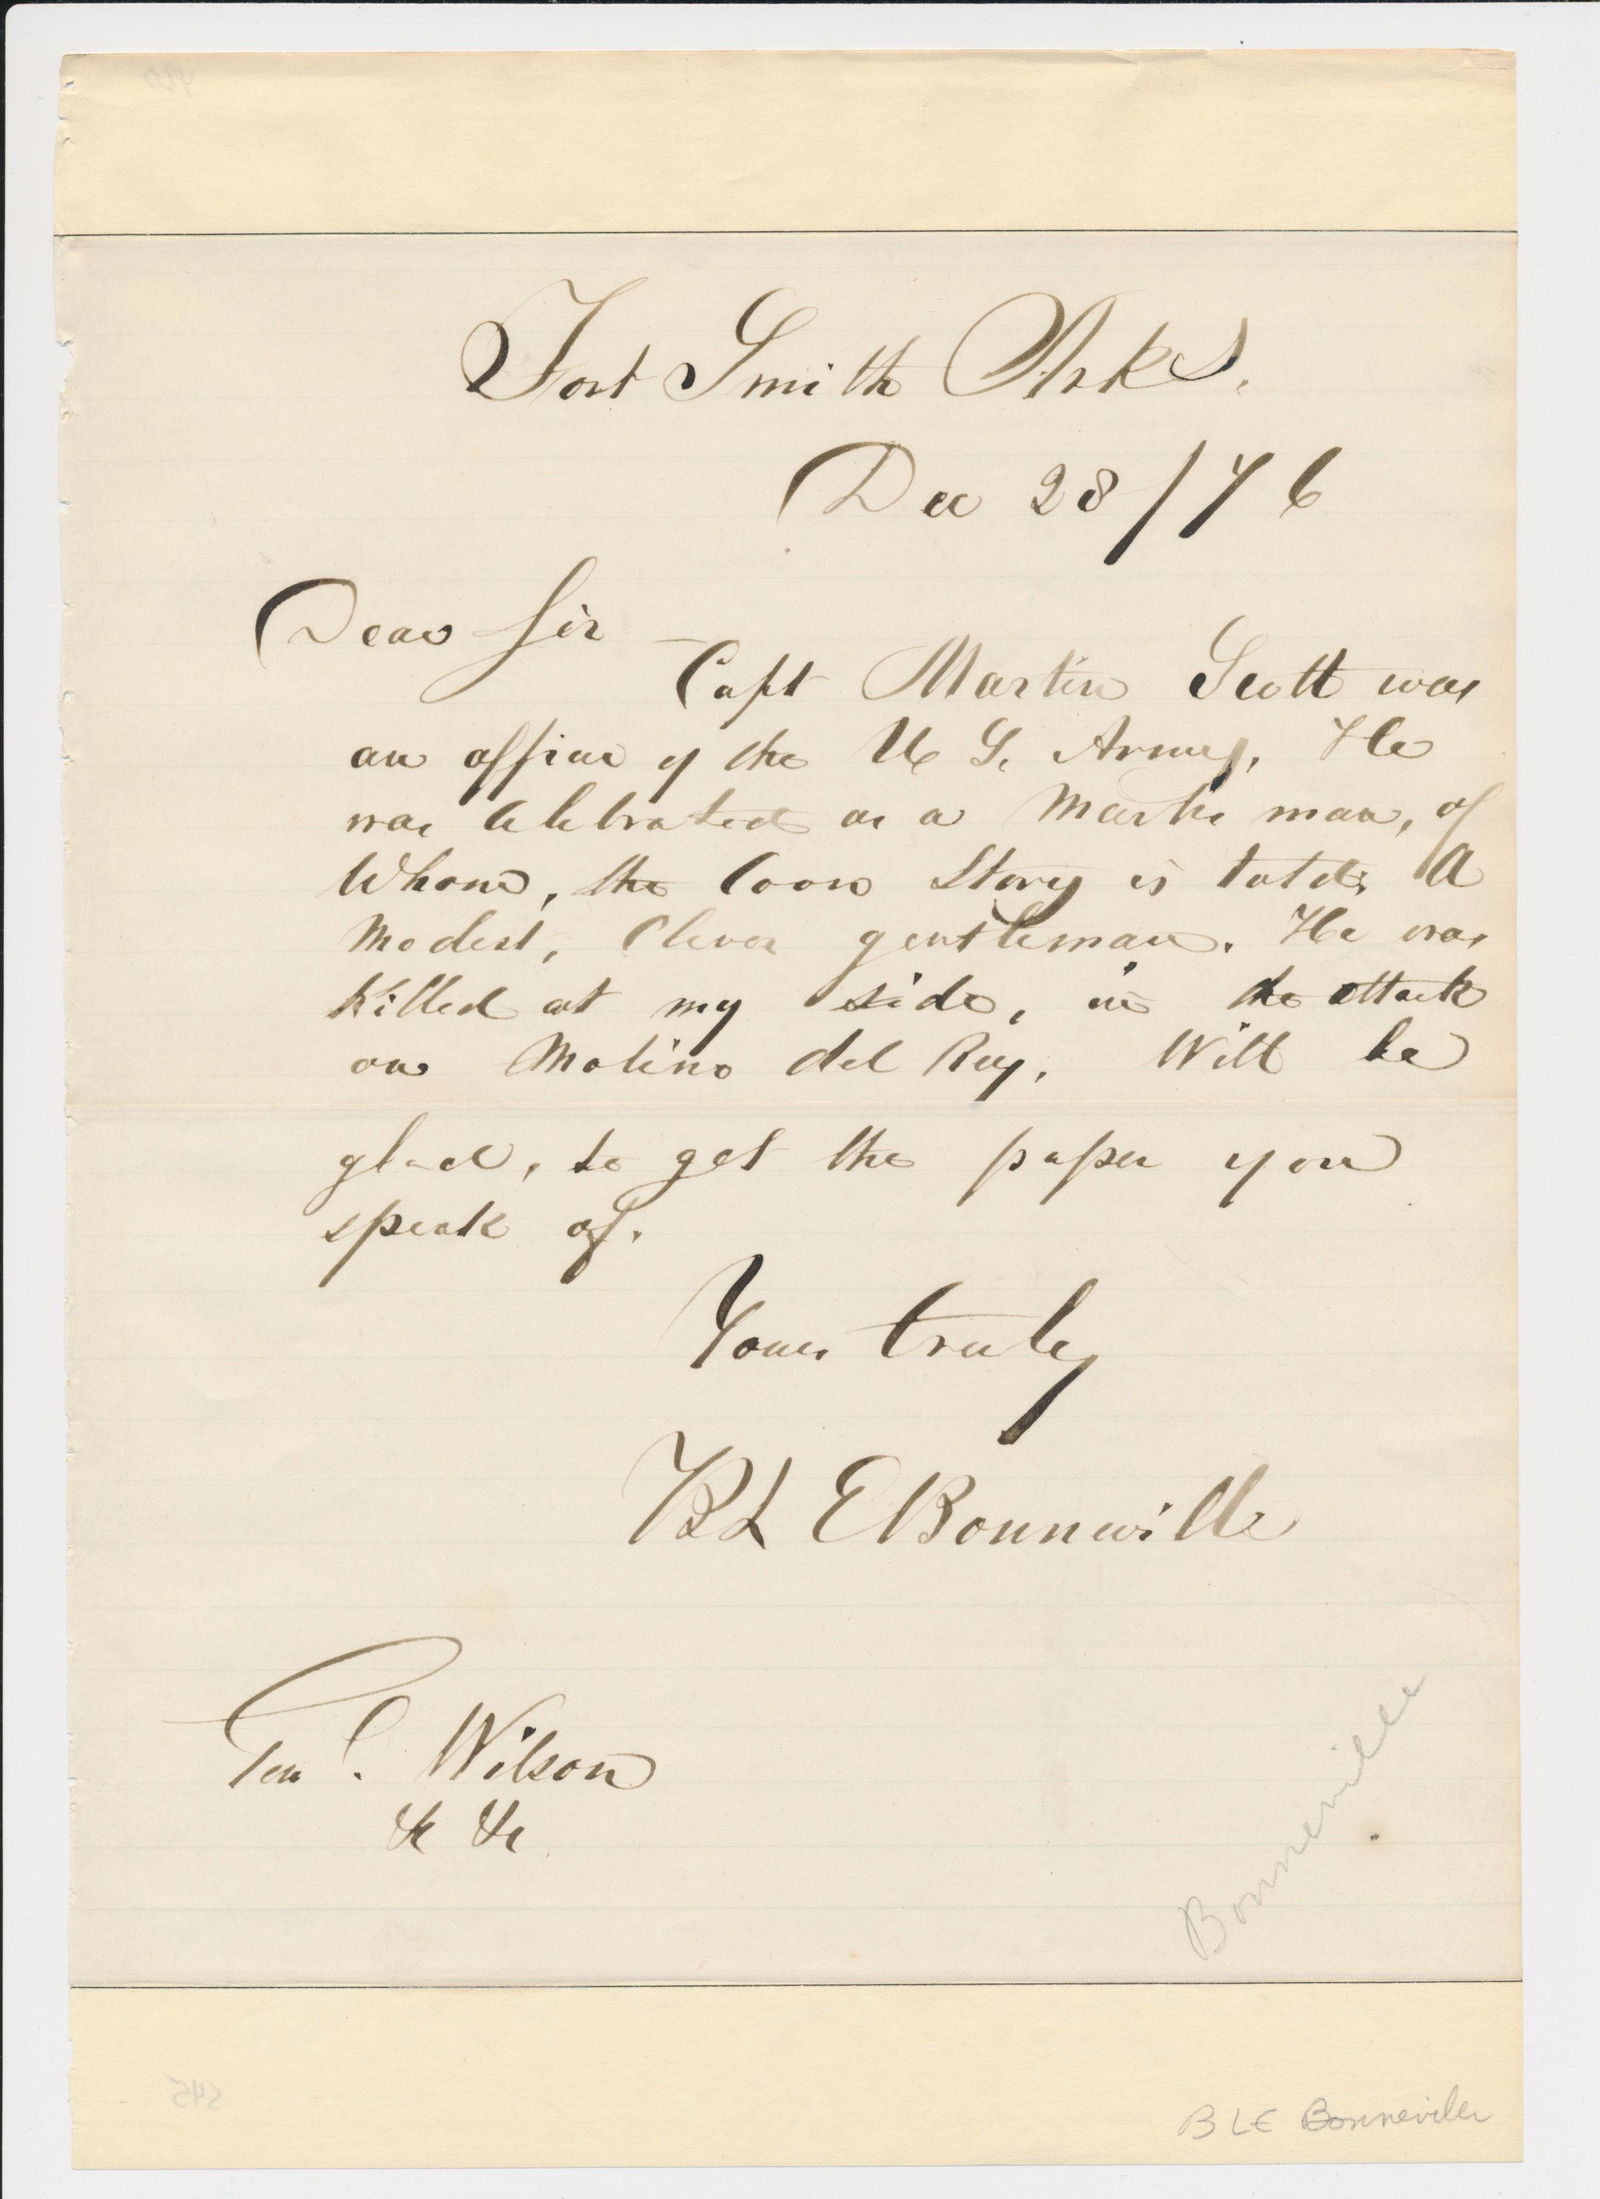 Fort Smith Arks.
Dec 28/76
Dear Sir —
Capt Martin Scott was
an officer of the U S. Army. He
was celebrated as a Marks man, of
Whom, the Coon Story is told. A
Modest, Clever gentleman. He was
killed at my side, in the attack
on Molino del Rey. Will be
glad, to get the paper you
speak of.
Yours truly
B L E Bonneville
Wilson
&c &c
Bonneville
B LE Bonneville
545